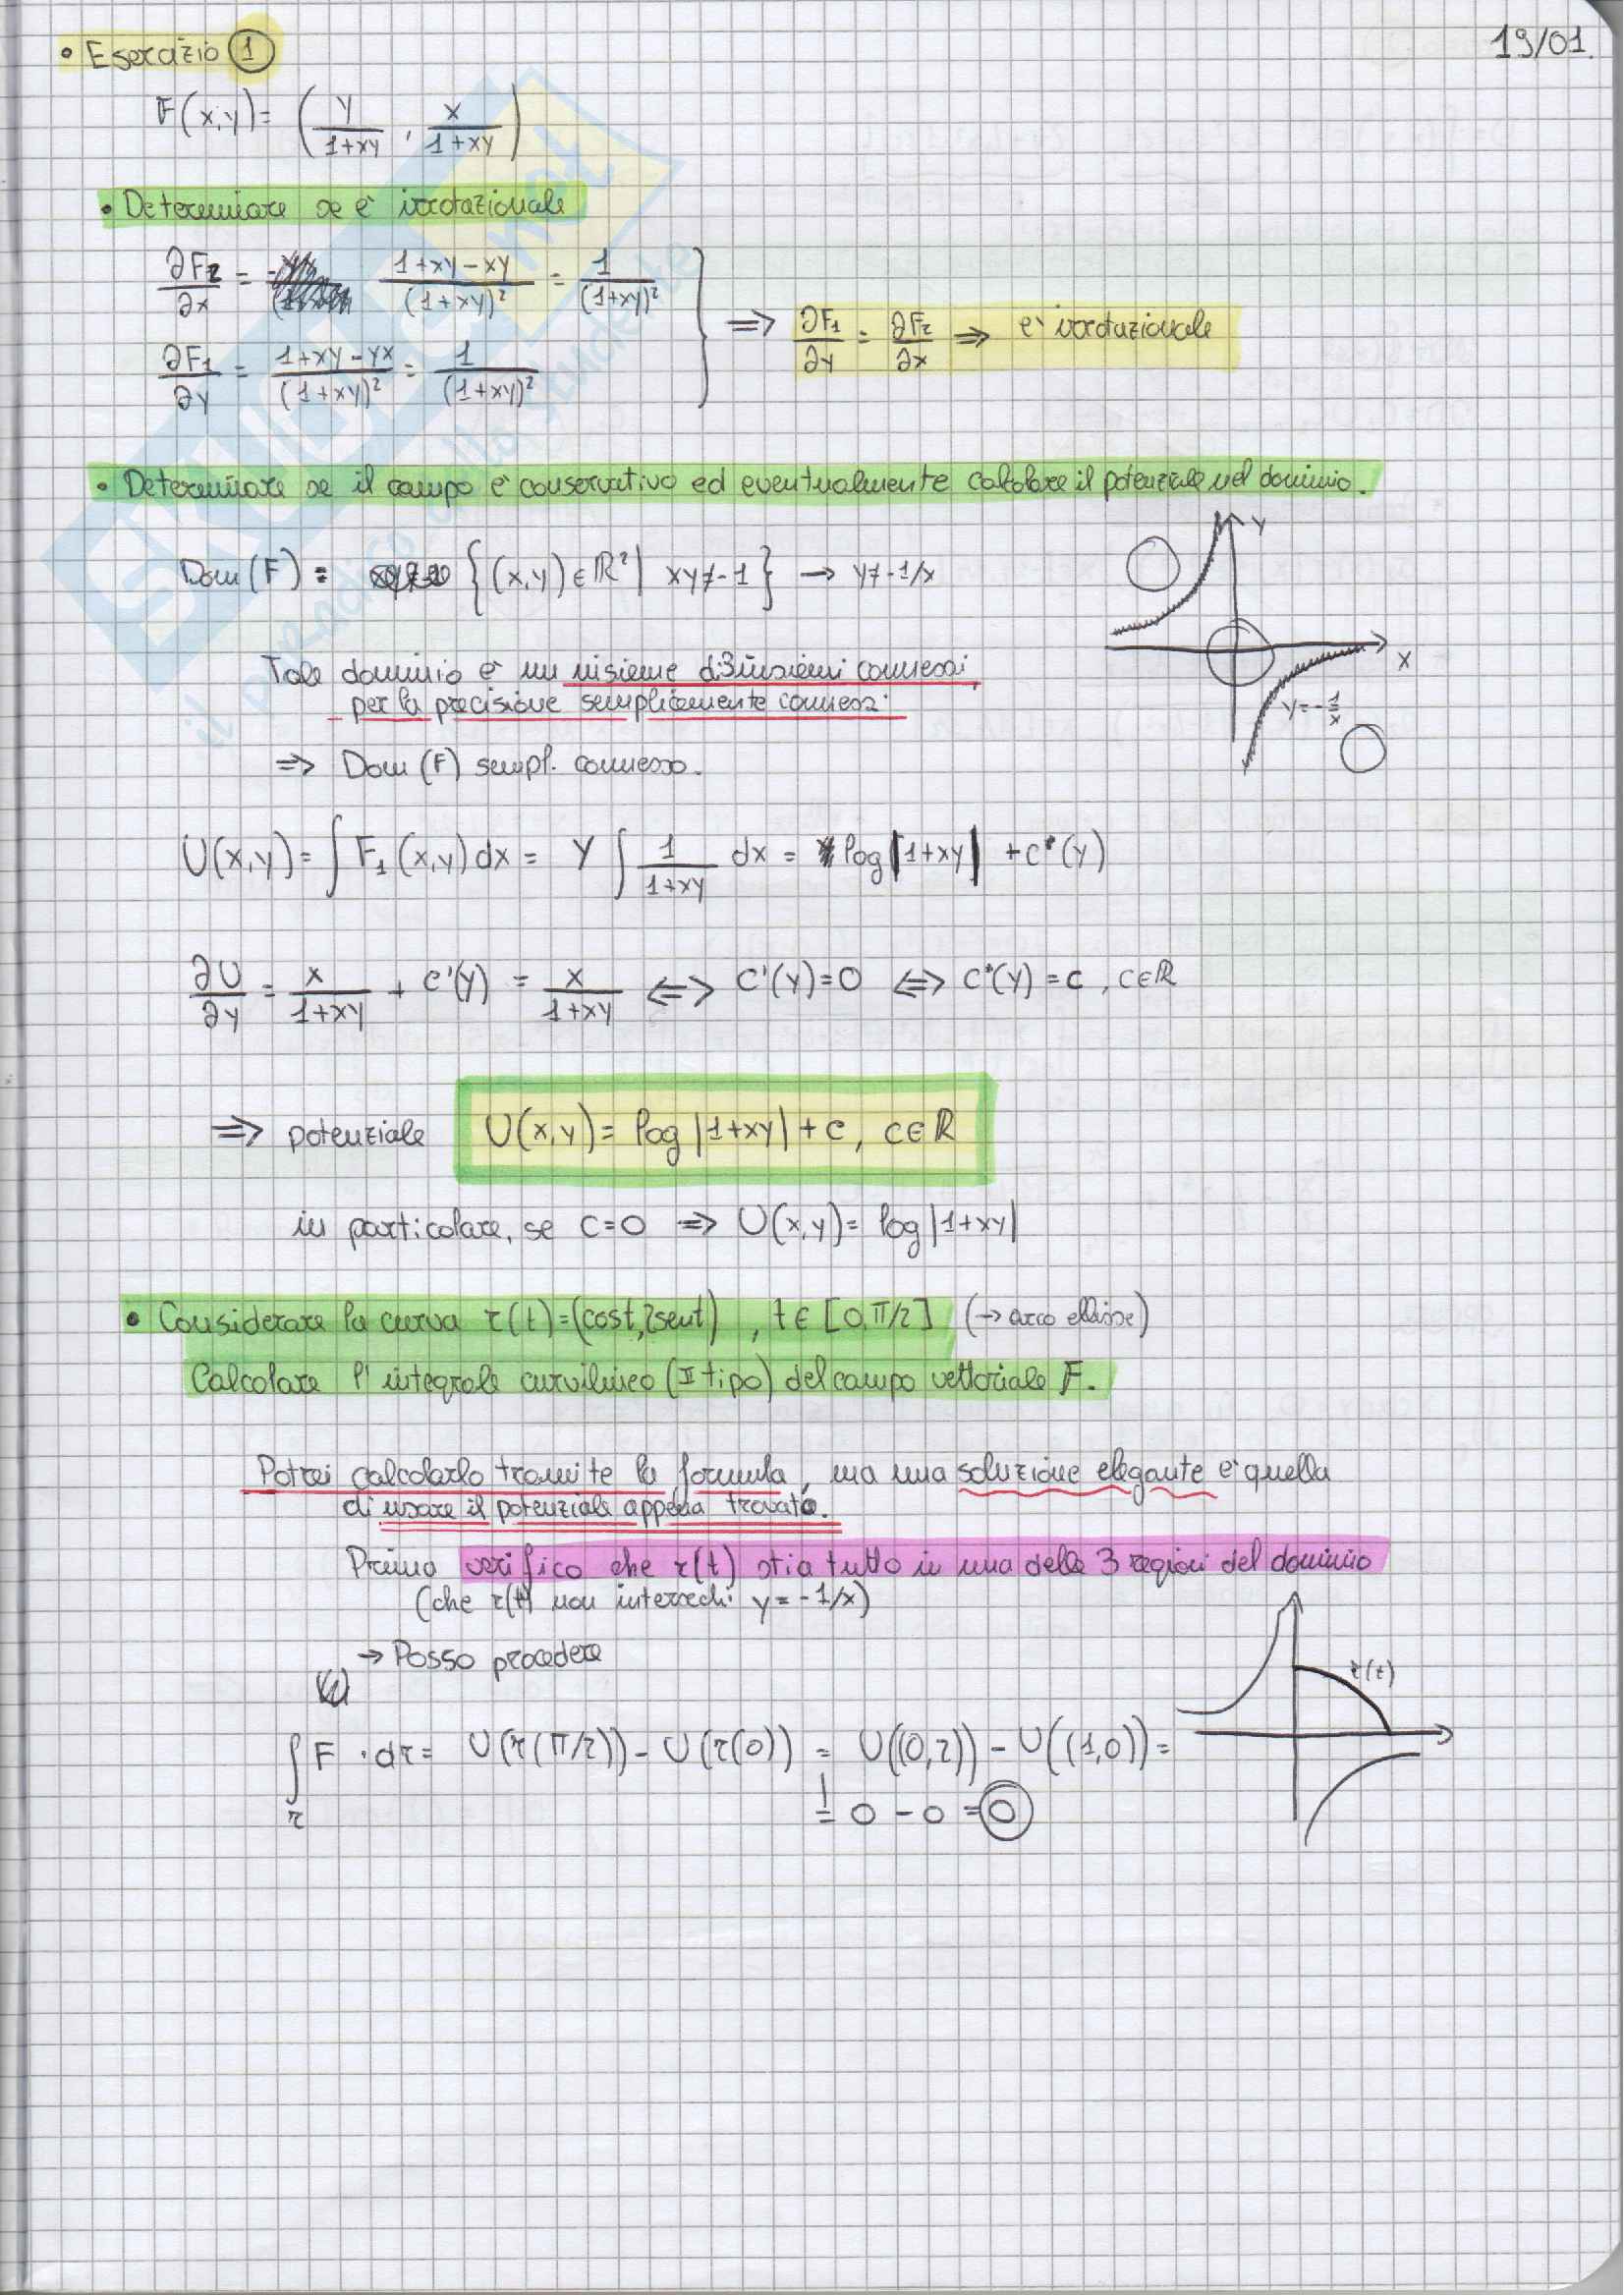 19/01.
• Esercizio 1
F(x,y) = ( y/(1+xy) , x/(1+xy) )
• Determinare se è irrotazionale
∂F2/∂x = (1+xy-xy)/(1+xy)² = 1/(1+xy)²
∂F1/∂y = (1+xy-yx)/(1+xy)² = 1/(1+xy)²
⇒ ∂F1/∂y = ∂F2/∂x ⇒ è irrotazionale
• Determinare se il campo è conservativo ed eventualmente calcolare il potenziale nel dominio.
Dom(F) = {(x,y) ∈ ℝ² | xy ≠ -1} → y ≠ -1/x
y
x
y = -1/x
Tale dominio è un insieme di 3 insiemi connessi,
per la precisione semplicemente connessi.
⇒ Dom(F) sempl. connesso.
U(x,y) = ∫ F1(x,y) dx = y ∫ 1/(1+xy) dx = log|1+xy| + c*(y)
∂U/∂y = x/(1+xy) + c'(y) = x/(1+xy) ⇔ c'(y) = 0 ⇔ c*(y) = c, c∈ℝ
⇒ potenziale U(x,y) = log|1+xy| + c, c∈ℝ
in particolare, se c=0 ⇒ U(x,y) = log|1+xy|
• Considerare la curva r(t) = (cost, 2sent), t ∈ [0, π/2] (→ arco ellisse)
Calcolare l'integrale curvilineo (II tipo) del campo vettoriale F.
Potrei calcolarlo tramite la formula, ma una soluzione elegante è quella
di usare il potenziale appena trovato.
Prima verifico che r(t) stia tutto in una delle 3 regioni del dominio
(che r(t) non intersechi y = -1/x)
→ Posso procedere
r(t)
∫r F · dr = U(r(π/2)) - U(r(0)) = U((0,2)) - U((1,0)) =
= 0 - 0 = 0
SKUOLA.net
il paradiso dello studente